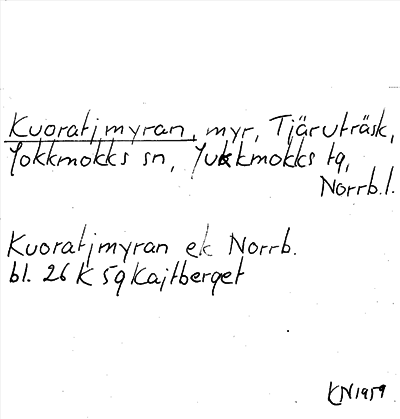 Kuoratjmyran, myr, Tjäruträsk,
Jokkmokks sn, Jukkmokks tg,
Norrb.l.
Kuoratjmyran ek Norrb.
bl. 26 K 5g Kajtberget
KN 1959